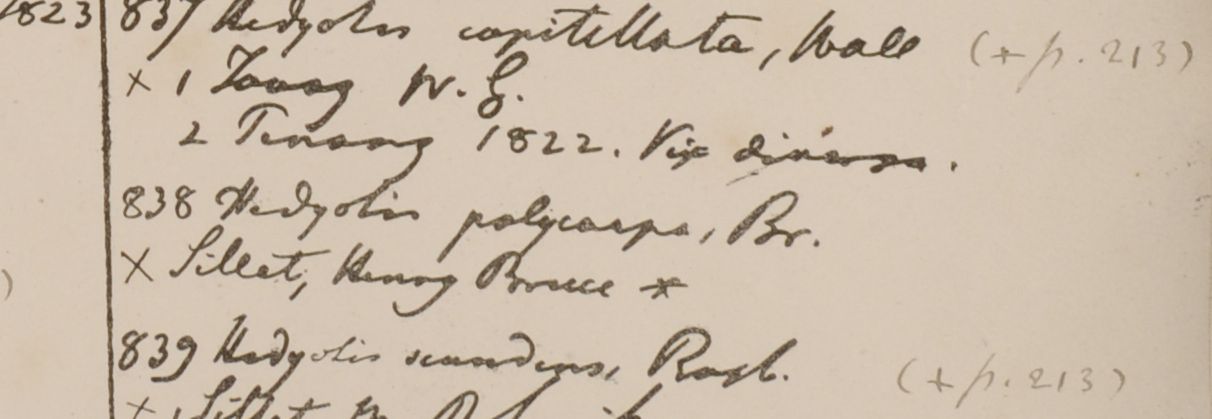 1823 837 Hedyotis capitellata, Wall (+ p. 213)
× 1 Tavoy W. G.
2 Penang 1822. Vix diversa.
838 Hedyotis polycarpa, Br.
× Sillet, Henry Bruce *
839 Hedyotis scandens, Roxb. (+ p. 213)
× 1 Sillet